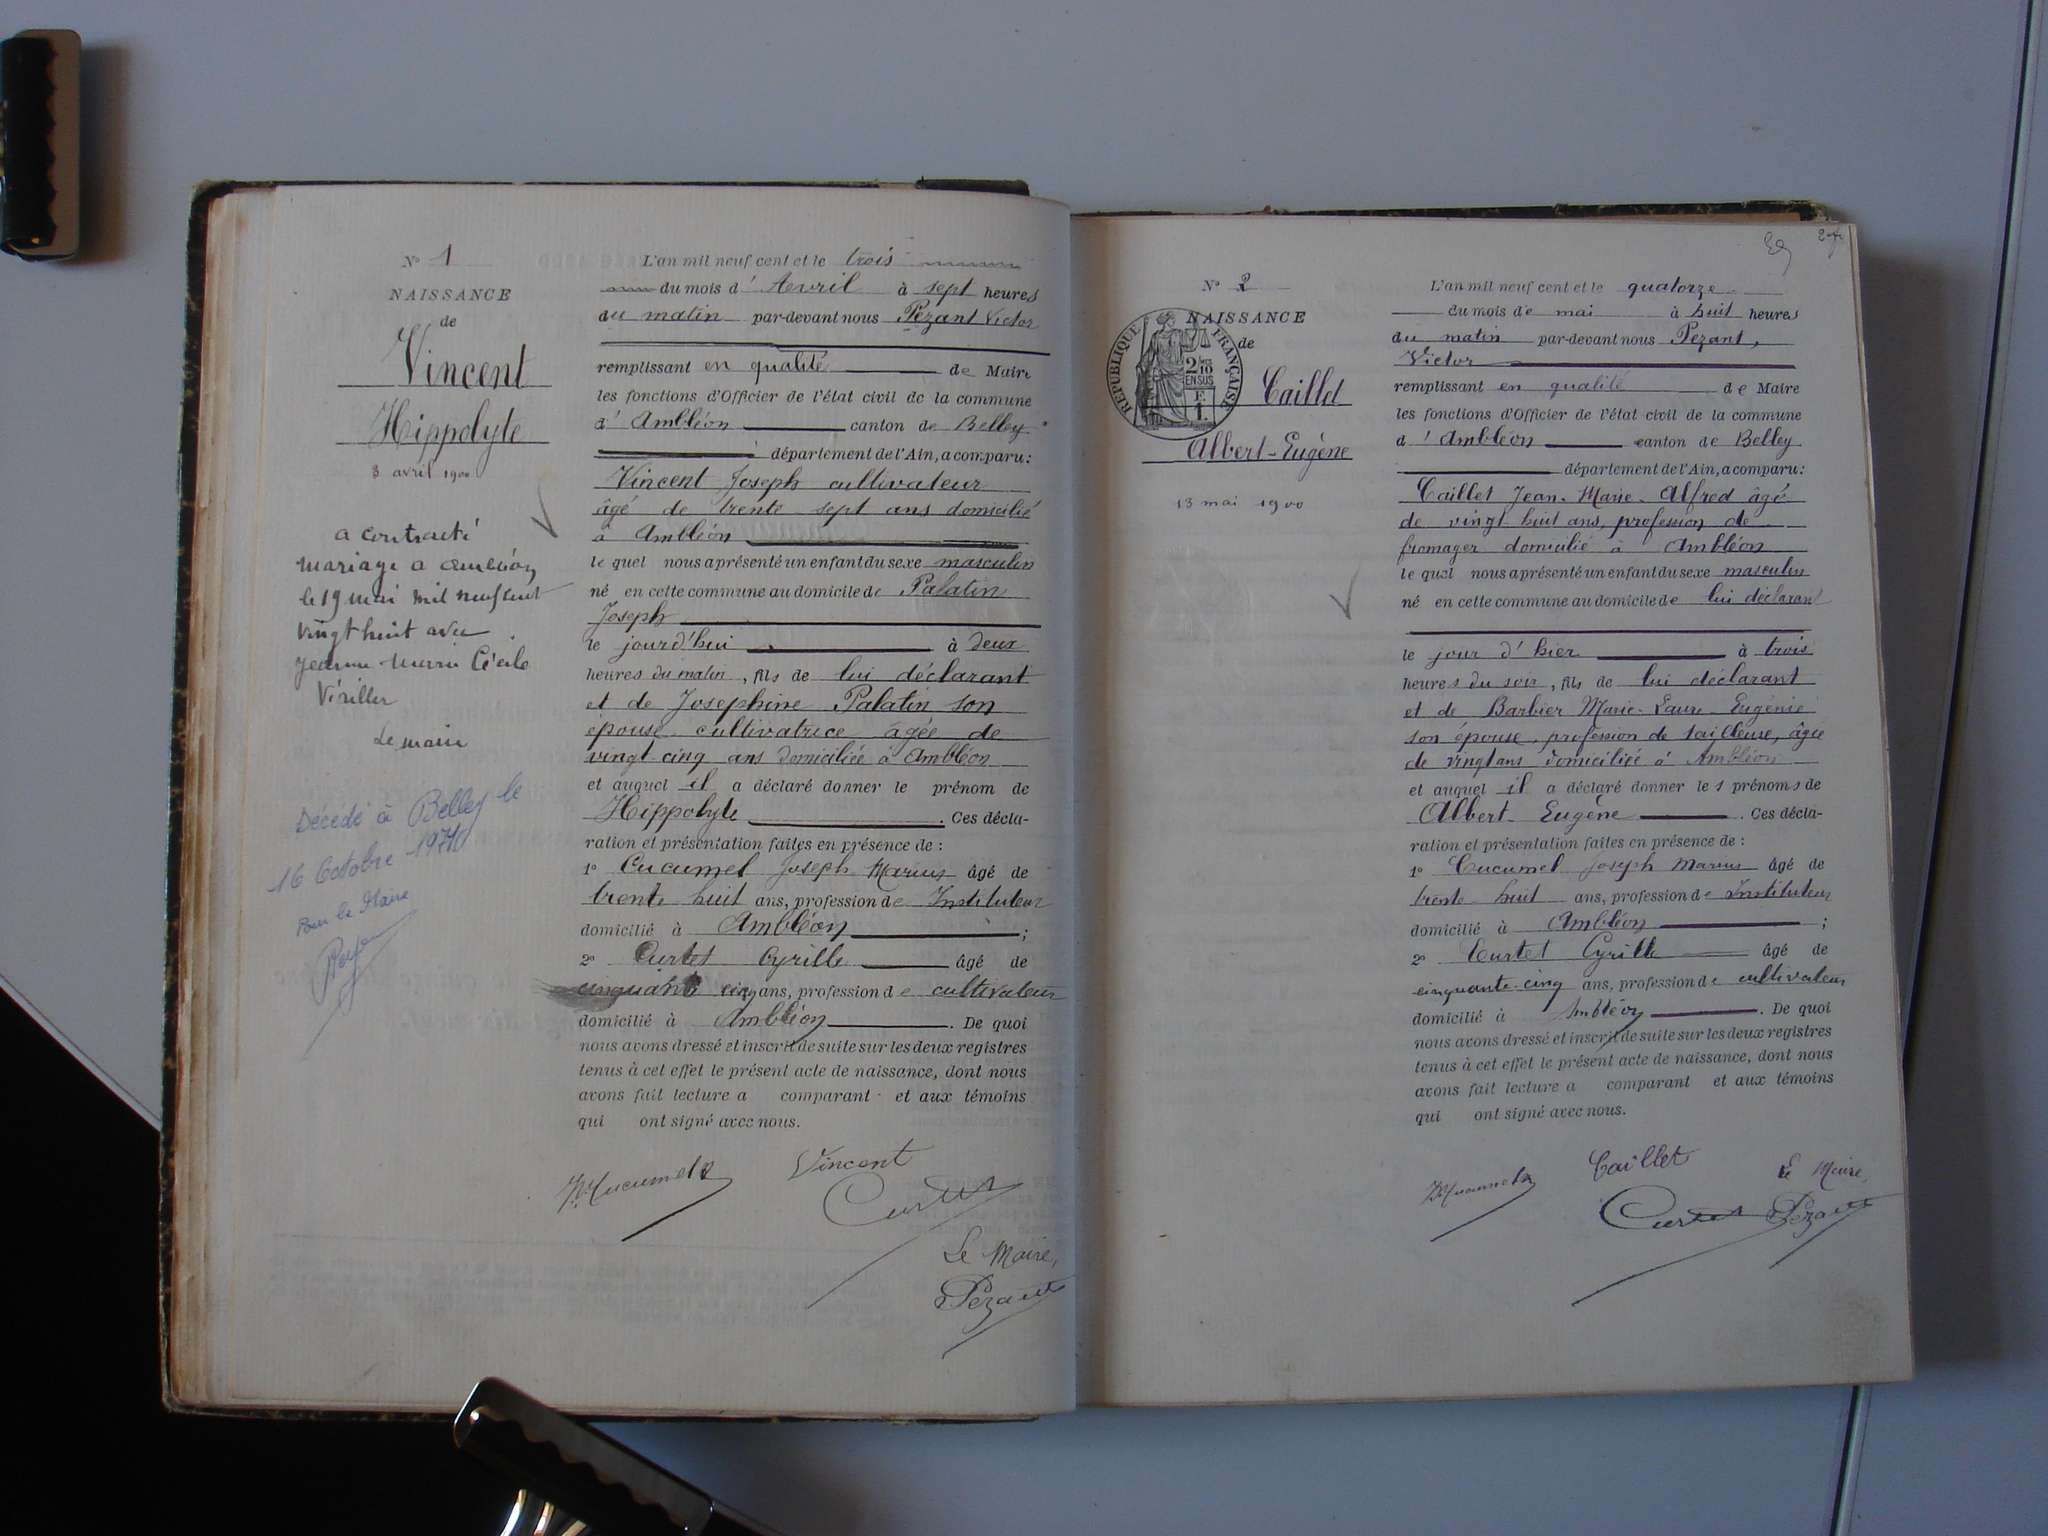 N° 1
NAISSANCE
de
Vincent
Hippolyte
3 avril 1900
a contracté
mariage a ambléon
le 19 mai mil neuf cent
vingt huit avec
Jeanne Marie Cécile
Le maire
Décédé à Belley le
16 Octobre 1970
Pour le Maire
L'an mil neuf cent et le trois
du mois d'Avril à sept heures
du matin par-devant nous Pezant Victor
remplissant en qualité de Maire
les fonctions d'Officier de l'état civil de la commune
d'Ambléon canton de Belley
département de l'Ain, a comparu:
Vincent Joseph cultivateur
âgé de trente sept ans domicilié
à Ambléon
le quel nous a présenté un enfant du sexe masculin
né en cette commune au domicile de Palatin
Joseph
le jourd'hui à deux
heures du matin, fils de lui déclarant
et de Josephine Palatin son
épouse cultivatrice âgée de
vingt-cinq ans domiciliée à Ambléon
et auquel il a déclaré donner le prénom de
Hippolyte. Ces décla-
ration et présentation faites en présence de:
1° Cucumel Joseph Marius âgé de
trente huit ans, profession de Instituteur
domicilié à Ambléon;
2° Curtet Cyrille âgé de
cinquante cinq ans, profession de cultivateur
domicilié à Ambléon. De quoi
nous avons dressé et inscrit de suite sur les deux registres
tenus à cet effet le présent acte de naissance, dont nous
avons fait lecture a comparant et aux témoins
qui ont signé avec nous.
Vincent
Jh Cucumel
Curtet
Le Maire,
Pezant
N° 2
NAISSANCE
de
RÉPUBLIQUE FRANÇAISE
2/10
EN SUS
F.
1.
Caillet
Albert-Eugène
13 mai 1900
L'an mil neuf cent et le quatorze
du mois de mai à huit heures
du matin par-devant nous Pezant,
Victor
remplissant en qualité de Maire
les fonctions d'Officier de l'état civil de la commune
d'Ambléon canton de Belley
département de l'Ain, a comparu:
Caillet Jean-Marie-Alfred âgé
de vingt huit ans, profession de
fromager domicilié à Ambléon
le quel nous a présenté un enfant du sexe masculin
né en cette commune au domicile de lui déclarant
le jour d'hier à trois
heures du soir, fils de lui déclarant
et de Barbier Marie-Laure-Eugénie
son épouse, profession de tailleuse, âgée
de vingt ans domiciliée à Ambléon
et auquel il a déclaré donner les prénoms de
Albert-Eugène. Ces décla-
ration et présentation faites en présence de:
1° Cucumel Joseph Marius âgé de
trente-huit ans, profession de Instituteur
domicilié à Ambléon;
2° Curtet Cyrille âgé de
cinquante-cinq ans, profession de cultivateur
domicilié à Ambléon. De quoi
nous avons dressé et inscrit de suite sur les deux registres
tenus à cet effet le présent acte de naissance, dont nous
avons fait lecture a comparant et aux témoins
qui ont signé avec nous.
Caillet
Le Maire,
Jh Cucumel
Curtet
Pezant